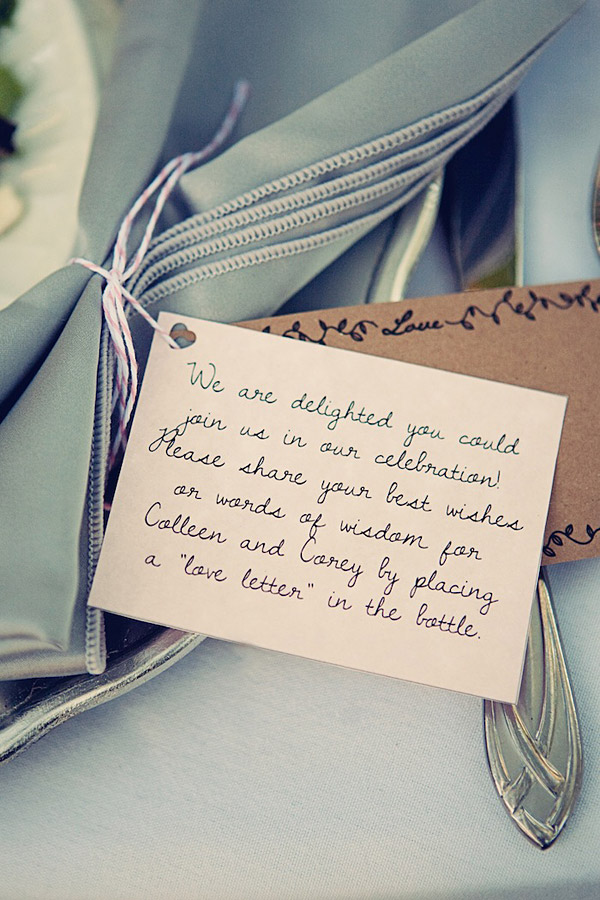 Love
We are delighted you could
join us in our celebration!
Please share your best wishes
or words of wisdom for
Colleen and Corey by placing
a "love letter" in the bottle.